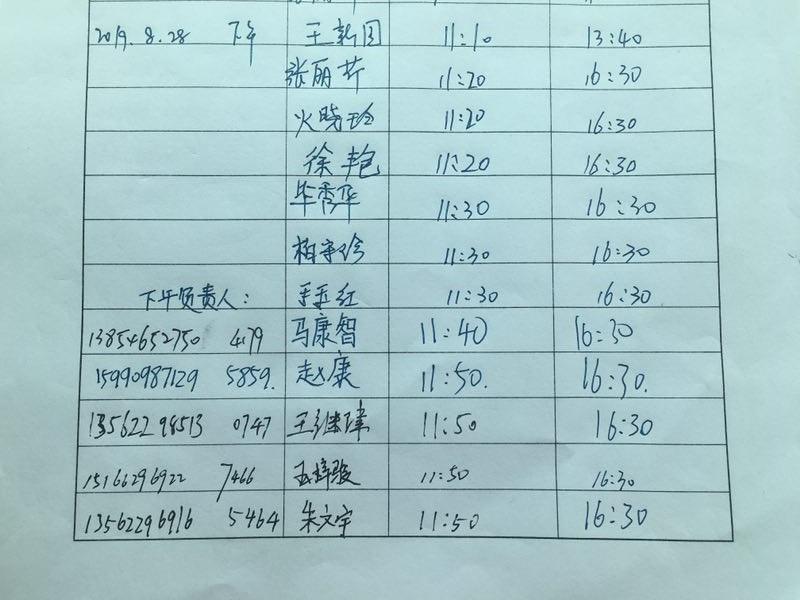 2019.8.28 下午 王新图 11:10 13:40
张丽芹 11:20 16:30
火晓玲 11:20 16:30
徐丰艳 11:20 16:30
毕秀华 11:30 16:30
柏守珍 11:30 16:30
下午负责人: 玉红 11:30 16:30
13854652750 4179 马康智 11:40 16:30
15990987129 5859. 赵康 11:50. 16:30.
13562298513 0747 王继璋 11:50 16:30
15166296922 7466 11:50 16:30
13562296916 5464 朱文宇 11:50 16:30